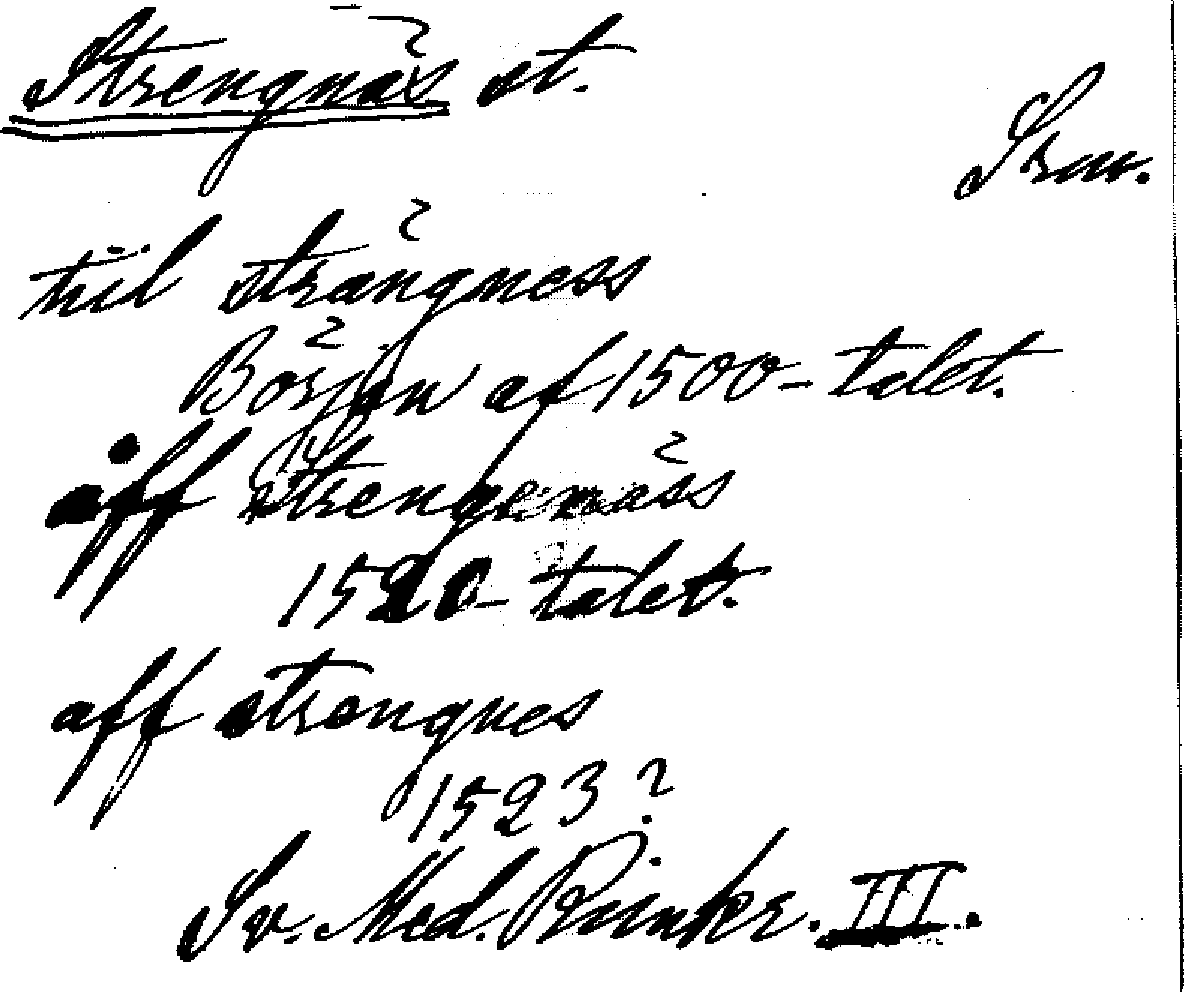 Strengnäs st.
Srm.
till strängness
Början af 1500-talet.
åff strengenäss
1520-talet.
aff strengnes
1523?
Sv. Med. Rimkr. III.